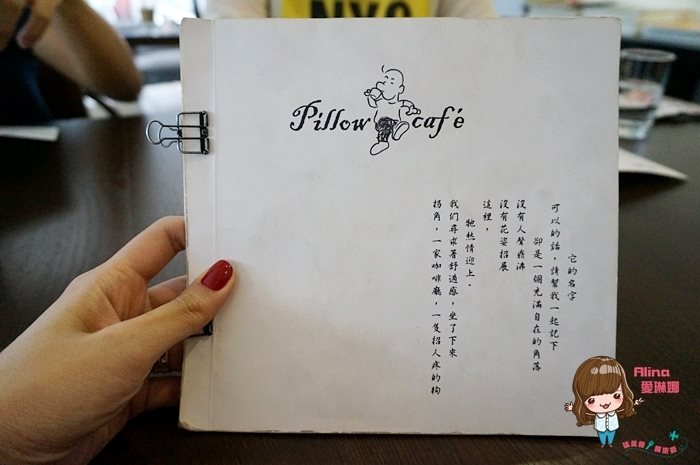 Pillow café
拐角，一家咖啡廳，一隻招人疼的狗
我们尋求著舒適感，坐了下來
牠熱情迎上。
這裡，
沒有花姿招展
沒有人聲鼎沸
卻是一個充滿自在的角落
可以的話，請幫我一起記下
它的名字
Alina
愛琳娜